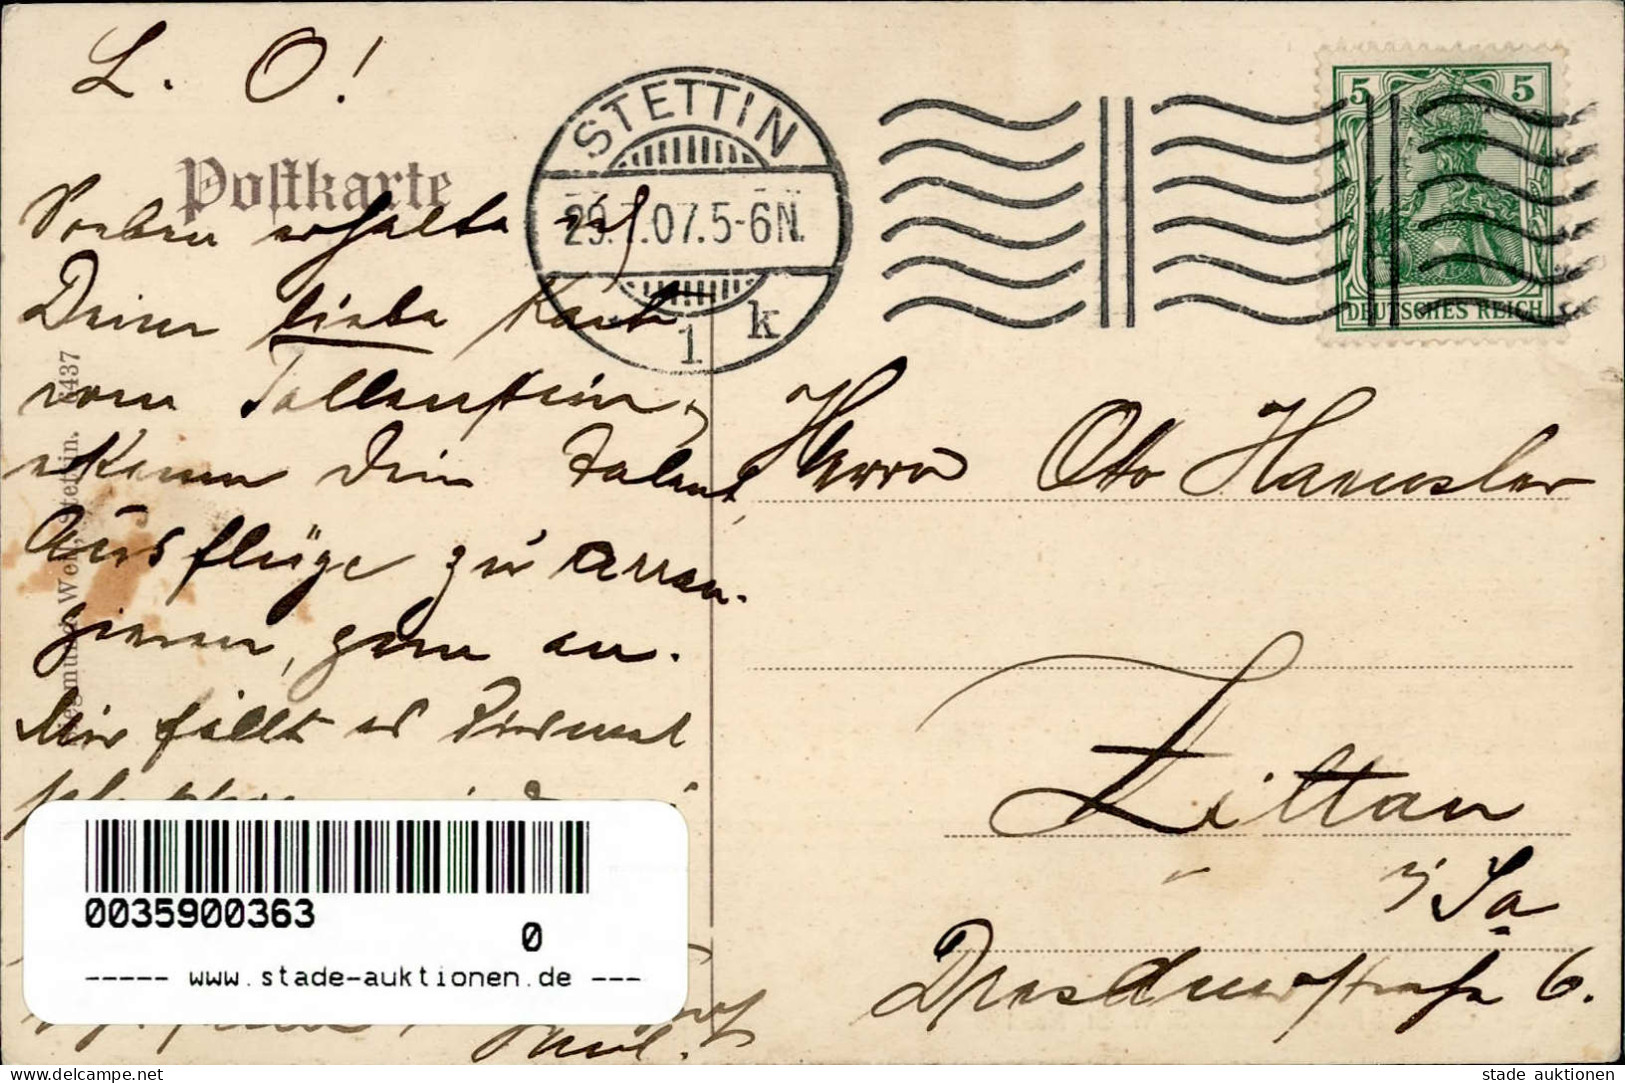 L. O!
Postkarte
Soeben erhalte ich
Deine liebe Karte
vom Tollenstein,
erkenne Dein Talent,
Ausflüge zu arran-
gieren, gern an.
Mir fällt es diesmal
Paul.
Siegmund Weil, Stettin. 6437
STETTIN
29.7.07.5-6N.
1 k
5 5
DEUTSCHES REICH
Herrn Otto Haeusler
Zittau
i/Sa
Dresdnerstraße 6.
0035900363
0
----- www.stade-auktionen.de ---
delcampe.net
stade auktionen